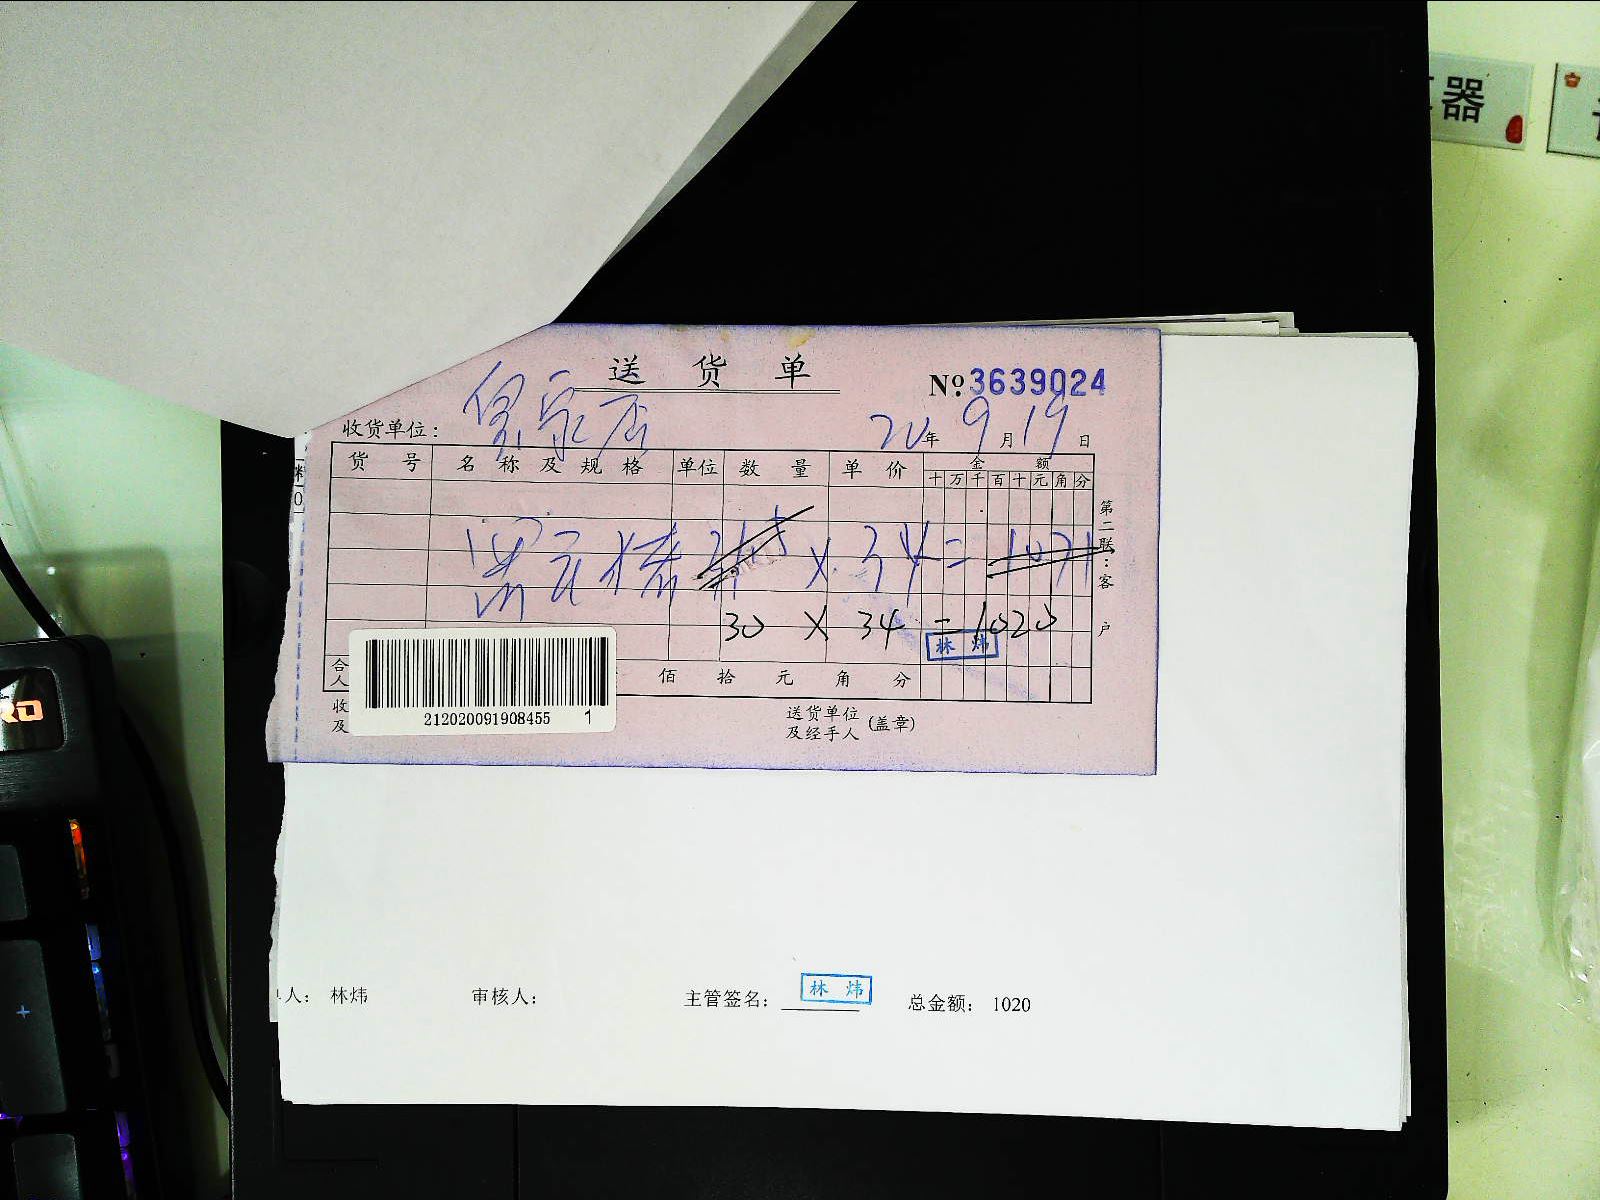 器
送货单
№ 3639024
收货单位: 店 20年9月19日
货号 名称及规格 单位 数量 单价 金额
十万千百十元角分
31.5 X 34 = 1071
30 X 34 = 1020
林炜
合 佰 拾 元 角 分
人
收 送货单位
及 及经手人 (盖章)
第二联:客户
212020091908455 1
人: 林炜 审核人: 主管签名: 林炜 总金额: 1020
RO